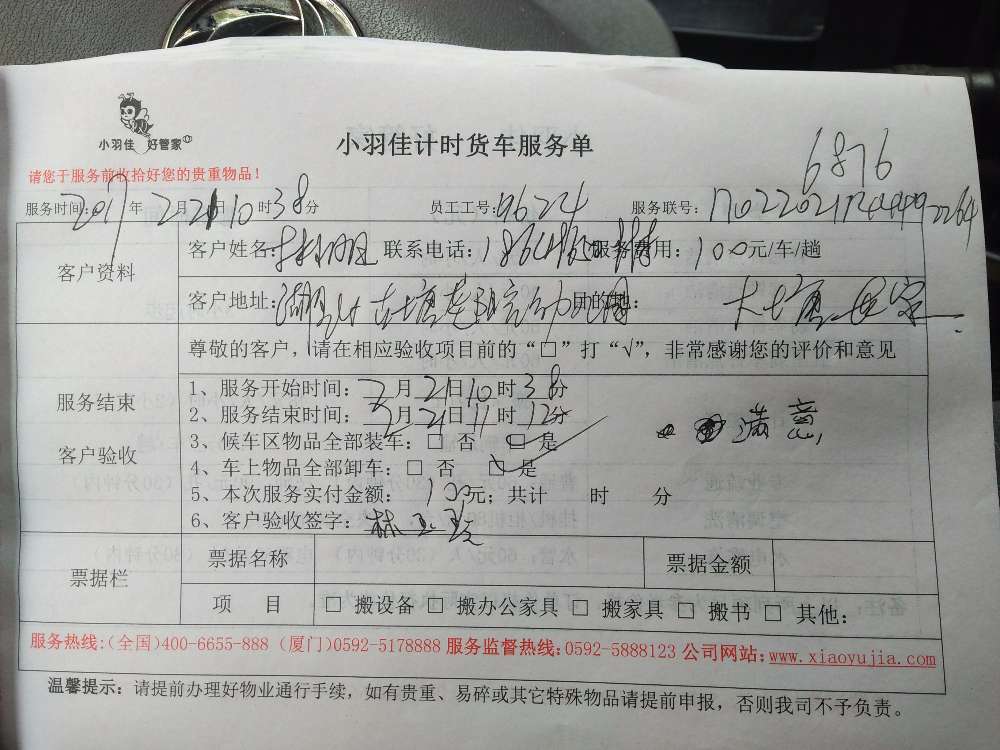 小羽佳 好管家
小羽佳计时货车服务单
6876
请您于服务前收拾好您的贵重物品！
服务时间:2017年2月21 10时38分 员工工号:9624 服务联号:
客户资料
客户姓名: 联系电话: 服务费用:100元/车/趟
客户地址: 目的地:
尊敬的客户，请在相应验收项目前的“□”打“√”，非常感谢您的评价和意见
服务结束
客户验收
1、服务开始时间：2月21日10时38分
2、服务结束时间：2月21日11时12分
3、候车区物品全部装车：□ 否 □ 是
满意
4、车上物品全部卸车：□ 否 □ 是
5、本次服务实付金额：100元；共计 时 分
6、客户验收签字：
票据栏
票据名称 票据金额
项 目 □ 搬设备 □ 搬办公家具 □ 搬家具 □ 搬书 □ 其他：
服务热线:(全国)400-6655-888 (厦门)0592-5178888 服务监督热线:0592-5888123 公司网站:www.xiaoyujia.com
温馨提示：请提前办理好物业通行手续，如有贵重、易碎或其它特殊物品请提前申报，否则我司不予负责。